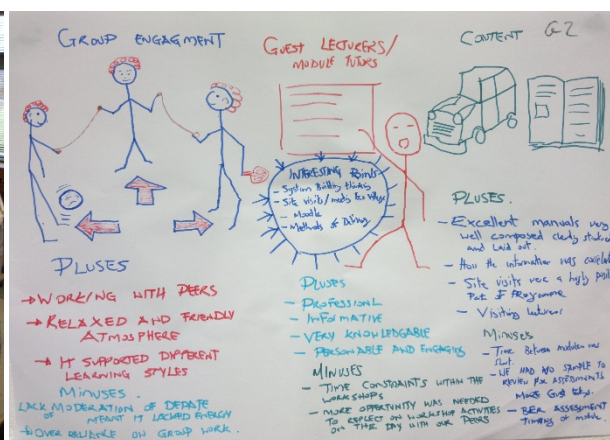 GROUP ENGAGMENT
PLUSES
→ WORKING WITH PEERS
→ RELAXED AND FRIENDLY
ATMOSPHERE
→ IT SUPPORTED DIFFERENT
LEARNING STYLES
MINUSES
LACK MODERATION OF DEBATE
MEANT IT LACKED ENERGY
OVER RELIANCE ON GROUP WORK.
GUEST LECTURERS/
MODULE TUTORS
INTERESTING POINTS
- System Building thinking
- Site visits/
- Moodle
- Methods of
PLUSES
- PROFESSIONAL
- INFORMATIVE
- VERY KNOWLEDGABLE
- PERSONABLE AND ENGAGING
MINUSES
- TIME CONSTRAINTS WITHIN THE
WORKSHOPS
- MORE OPPERTUNITY WAS NEEDED
TO REFLECT ON WORKSHOP ACTIVITIES
ON THE DAY WITH OUR PEERS
CONTENT G-2
PLUSES.
- Excellent manuals very
well composed clearly
and laid out.
- How the information was
- Site visits were a highly
Part of PROgramme
- Visiting lecturers
MINUSES
- Time Between modules was
short.
- WE HAD NO SAMPLE TO
REVIEW FOR ASSESSMENTS
More Guest
- BER ASSESSMENT
Timing of module